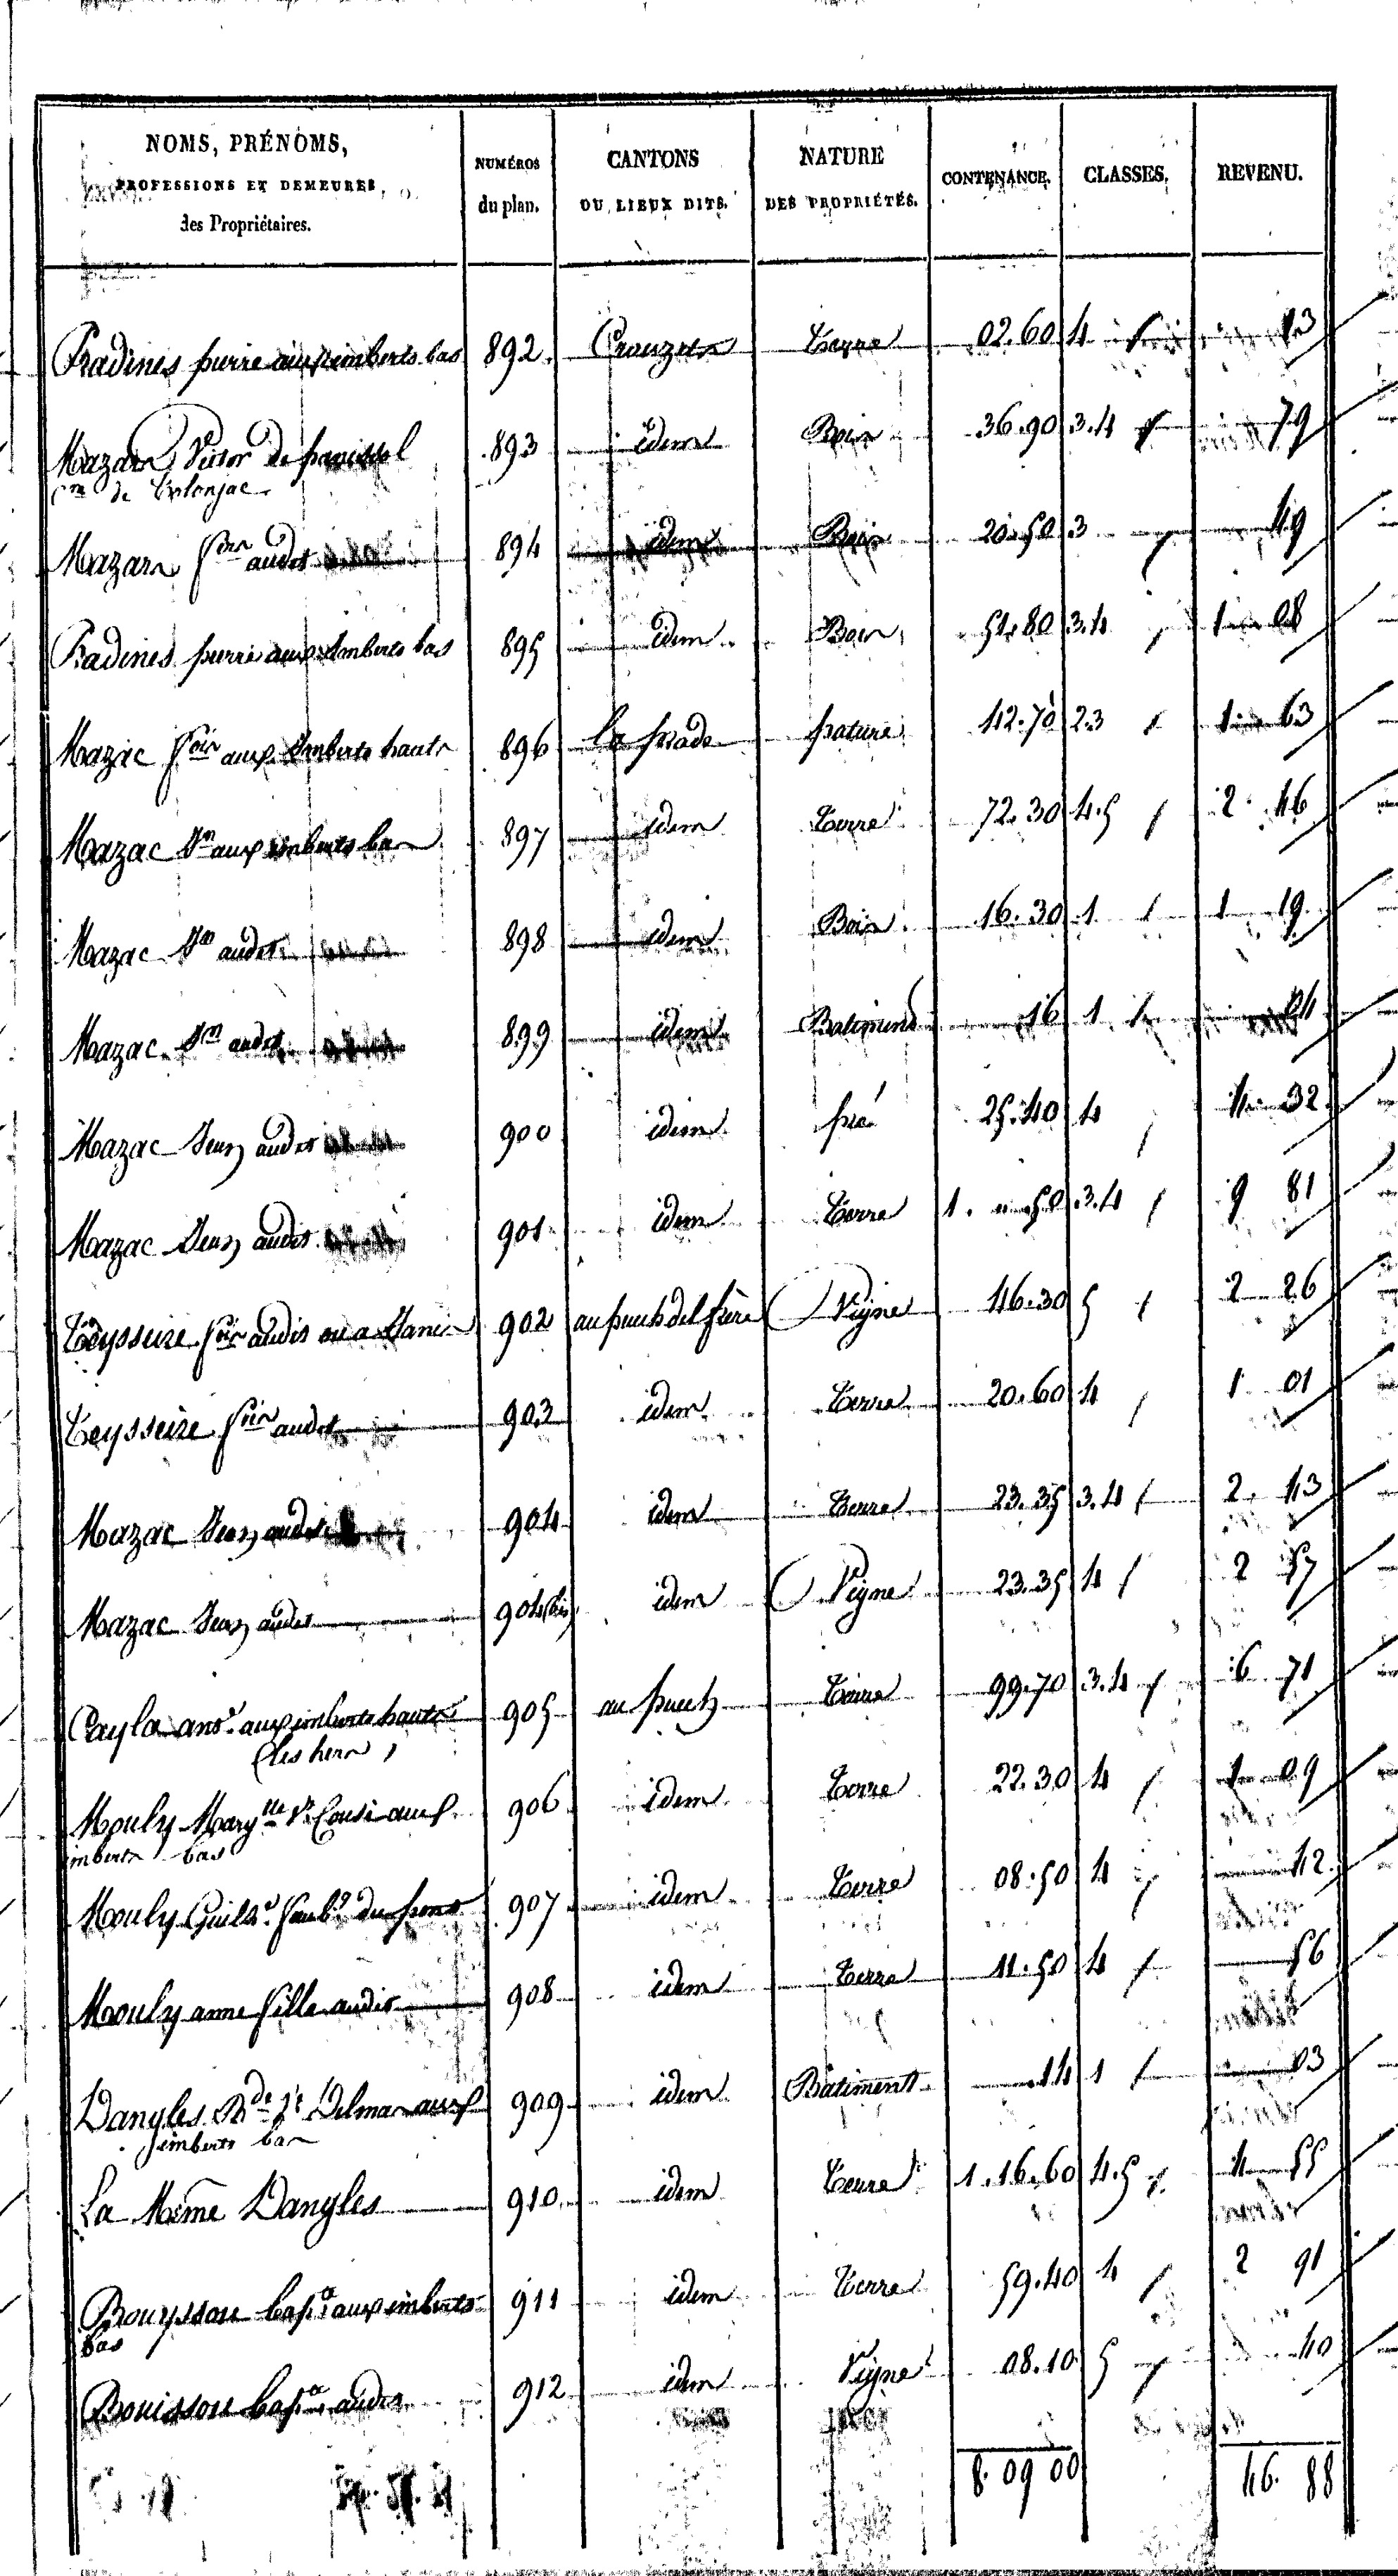 NOMS, PRÉNOMS, PROFESSIONS ET DEMEURES, des Propriétaires. NUMÉROS du plan. CANTONS OU LIEUX DITS. NATURE DES PROPRIÉTÉS. CONTENANCE. CLASSES. REVENU.
Pradines pierre aux imberts bas 892 Crouzets 02.60 4 13
Mazars Victor de panissal 893 idem Bois 36.90 3.4 79
cne de Tolonjac
Mazars fois audit 894 idem Bois 20.50 3 49
Pradines pierre aux imberts bas 895 idem Bois 51.80 3.4 1 08
Mazac fois aux imberts hauts 896 la prade pature 42.70 2.3 1 63
Mazac Jn aux imberts bas 897 idem Terre 72.30 4.5 2 46
Mazac Jn audit 898 idem Bois 16.30 1 1 19
Mazac Jn audit 899 idem Batiment 16 1 04
Mazac Jean audit 900 idem pré 25.40 4 4 32
Mazac Jean audit 901 idem Terre 1. " 50 3.4 9 81
Teysseire fois audit ou a 902 au puech del frère Vigne 46.30 5 2 26
Teysseire fois audit 903 idem Terre 20.60 4 1 01
Mazac Jean audit 904 idem Terre 23.35 3.4 2 13
Mazac Jean audit 904(bis) idem Vigne 23.35 4 2 57
Cayla ant. aux imberts hauts 905 au puech Terre 99.70 3.4 6 71
(les hers)
Mouly Marg.lle Ve aux 906 idem Terre 22.30 4 1 09
imberts bas
Mouly Guill.e faub.g du pont 907 idem Terre 08.50 4 42
Mouly anne fille audit 908 idem Terre 11.50 4 56
Dangles Delmas aux 909 idem Batiment 14 1 03
imberts bas
La Même Dangles 910 idem Terre 1.16.60 4.5 4 55
Bouyssou bap.te aux imberts 911 idem Terre 59.40 4 2 91
bas
Bouissou bap.te audit 912 idem Vigne 08.10 5 40
8. 09 00 46. 88